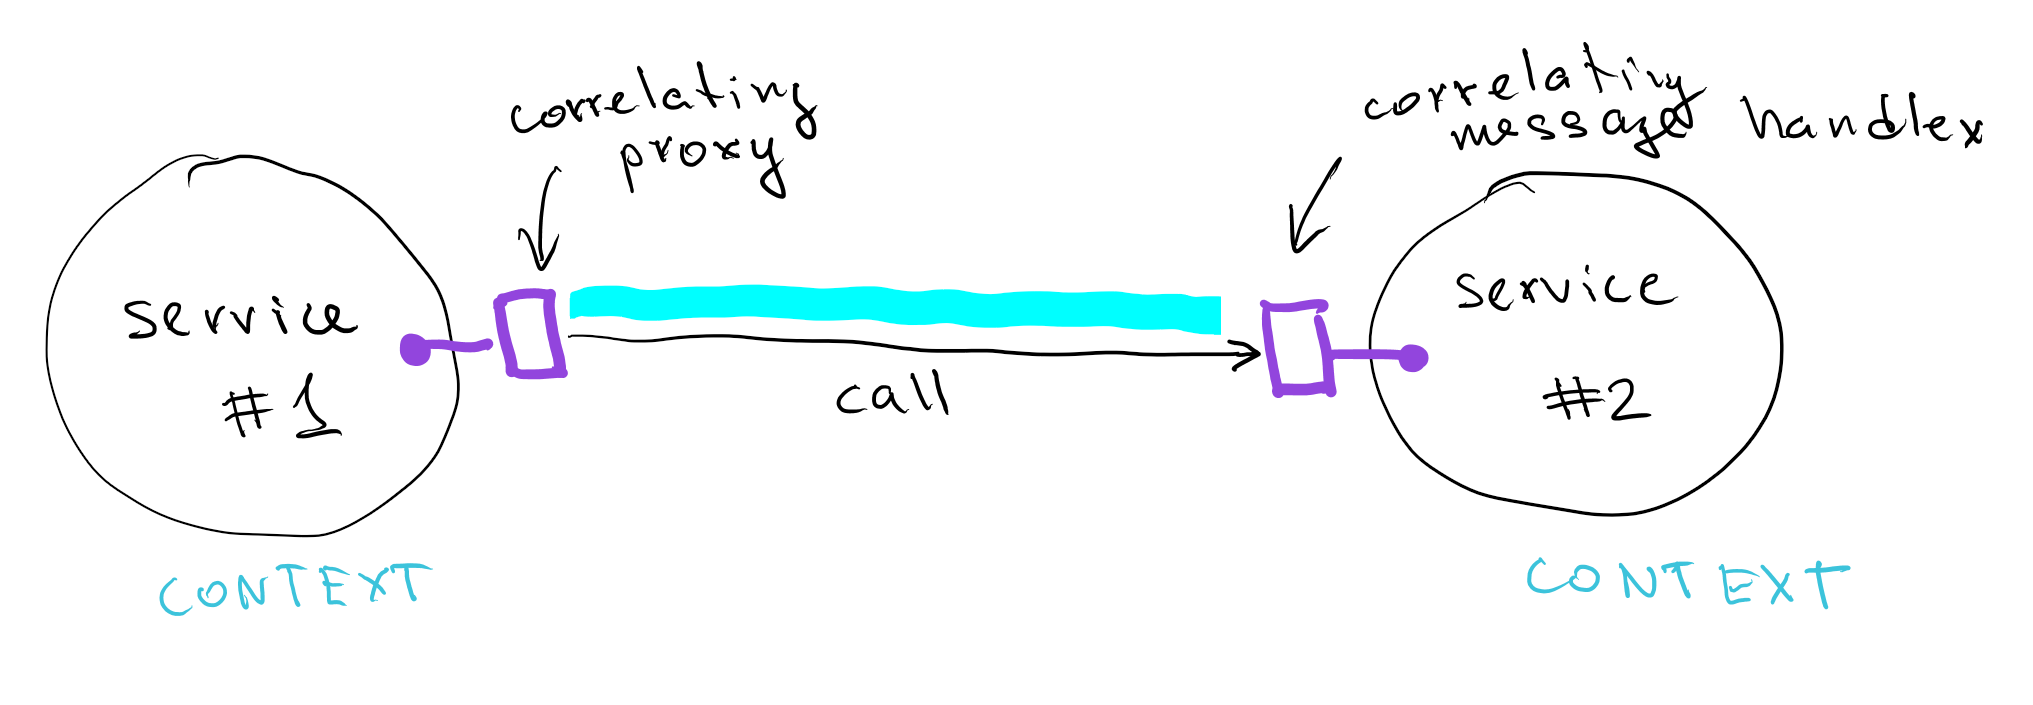 correlating
proxy
correlating
message handler
service
#1
service
#2
call
CONTEXT
CONTEXT